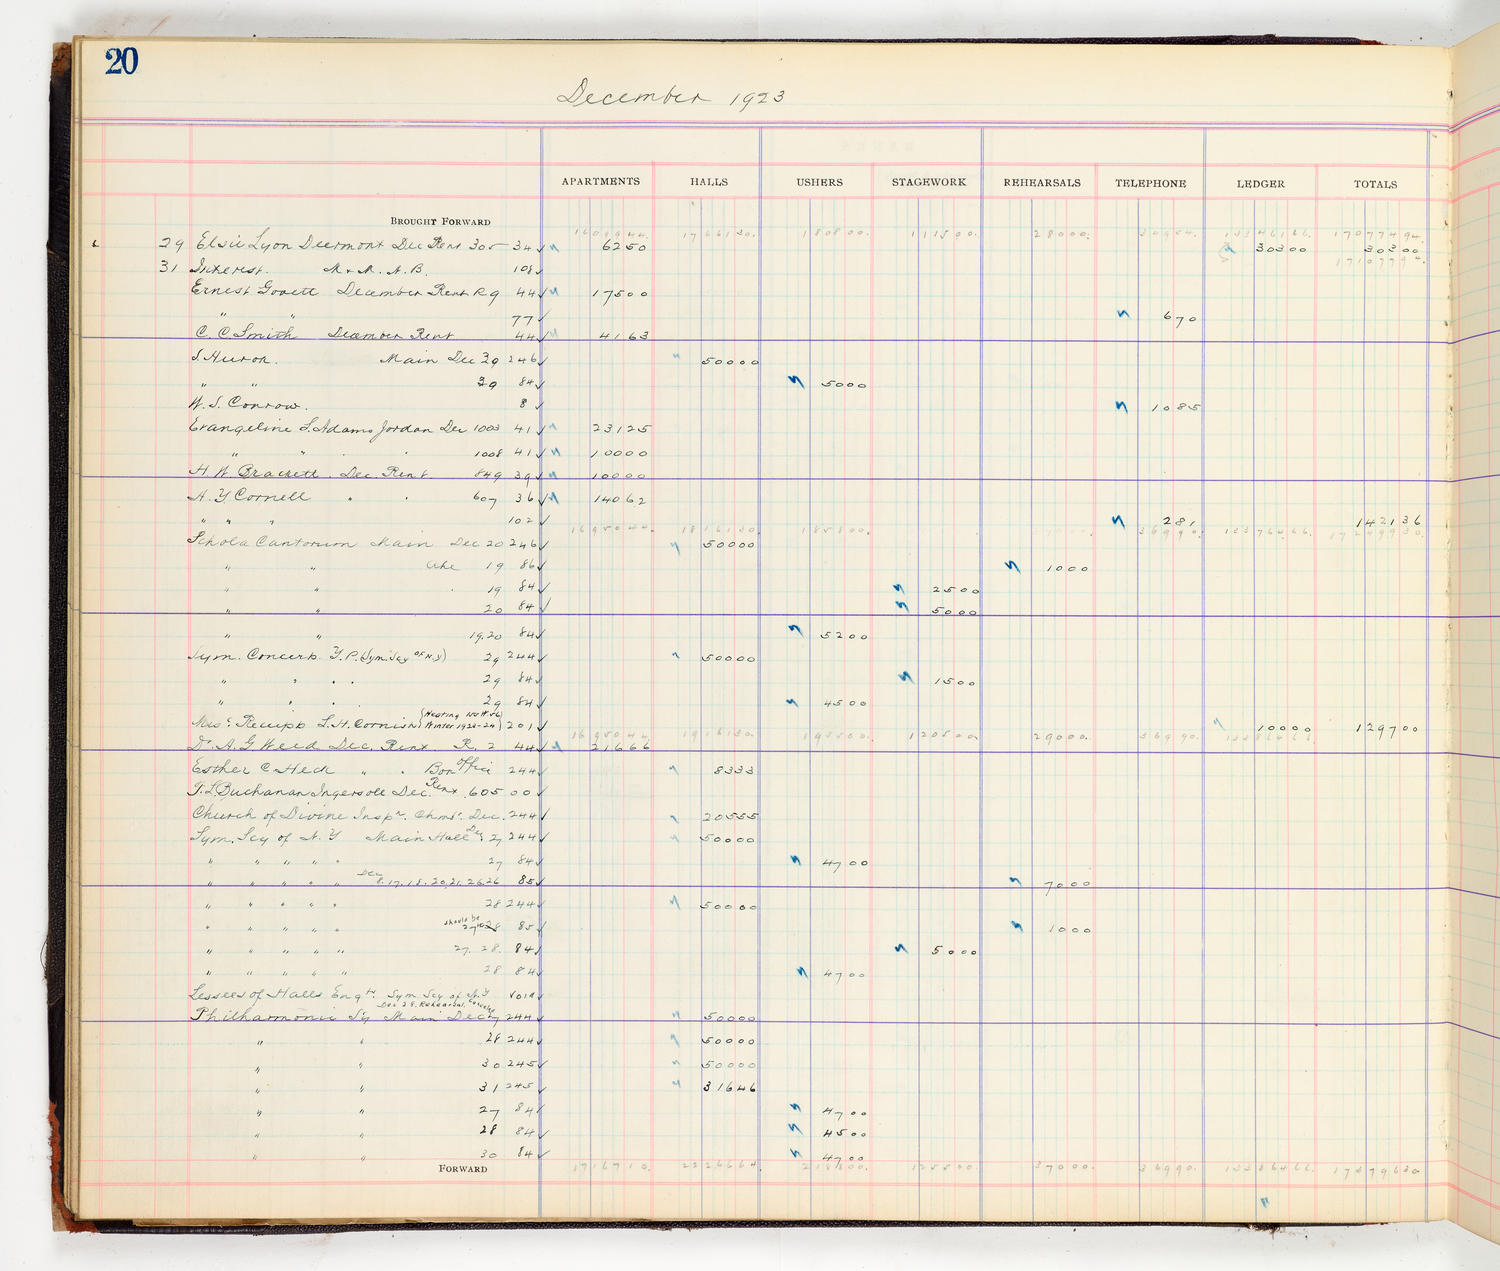 20
December 1923
APARTMENTS HALLS USHERS STAGEWORK REHEARSALS TELEPHONE LEDGER TOTALS
BROUGHT FORWARD
29 Elsie Lyon Deermont Dec Rent 305 34 ✓ 6250 30300 30300
31 Interest. M. & M. N. B. 108 ✓
Ernest Govett December Rent R 9 44 ✓ 17500
" " 77 ✓ 670
C. C Smith December Rent 44 ✓ 4163
S. Hurok. Main Dec 29 246 ✓ 50000
" " 29 84 ✓ 5000
W. S. Conrow. 8 ✓ 1085
Evangeline S. Adams Jordan Dec 1003 41 ✓ 23125
" " 1008 41 ✓ 10000
H W. Brackett. Dec Rent. 849 39 ✓ 10000
A. Y Cornell " " 607 36 ✓ 14062
" " " 102 ✓ 281 142136
Schola Cantorum Main Dec 20 246 ✓ 50000
" " 19 86 ✓ 1000
" " 19 84 ✓ 2500
" " 20 84 ✓ 5000
" " 19.20 84 ✓ 5200
Sym. Concerts Y. P. (Sym. Scy of N. Y) 29 244 ✓ 50000
" " " " 29 84 ✓ 1500
" " " " 29 84 ✓ 4500
(Heating
Misc. Receipts L. H. Cornish Winter 1923-24) 201 ✓ 10000 129700
Dr. A. G Weed Dec. Rent. R. 2 44 ✓ 21666
Esther C Heck " " Box Office 244 ✓ 8333
T. L. Buchanan Ingersoll Dec. Rent 605 00 ✓
Church of Divine Inspr. Chmr. Dec. 244 ✓ 20555
Sym. Scy of N. Y Main Hall Dec 27 244 ✓ 50000
" " " " " 27 84 ✓ 4700
" " " " " Dec 8. 17. 18. 20. 21. 26.26 85 ✓ 7000
" " " " " 28 244 ✓ 50000
" " " " " should be 28 85 ✓ 1000
" " " " " 27. 28. 84 ✓ 5000
" " " " " 28 84 ✓ 4700
Lessees of Halls Sym Scy of N. Y void
Dec 28. Rehearsal.
Philharmonic Sy Main Dec 27 244 ✓ 50000
" " 28 244 ✓ 50000
" " 30 245 ✓ 50000
" " 31 245 ✓ 31646
" " 27 84 ✓ 4700
" " 28 84 ✓ 4500
" " 30 84 ✓ 4700
FORWARD 1716710. 2226664. 218800. 125500. 37000. 36990.